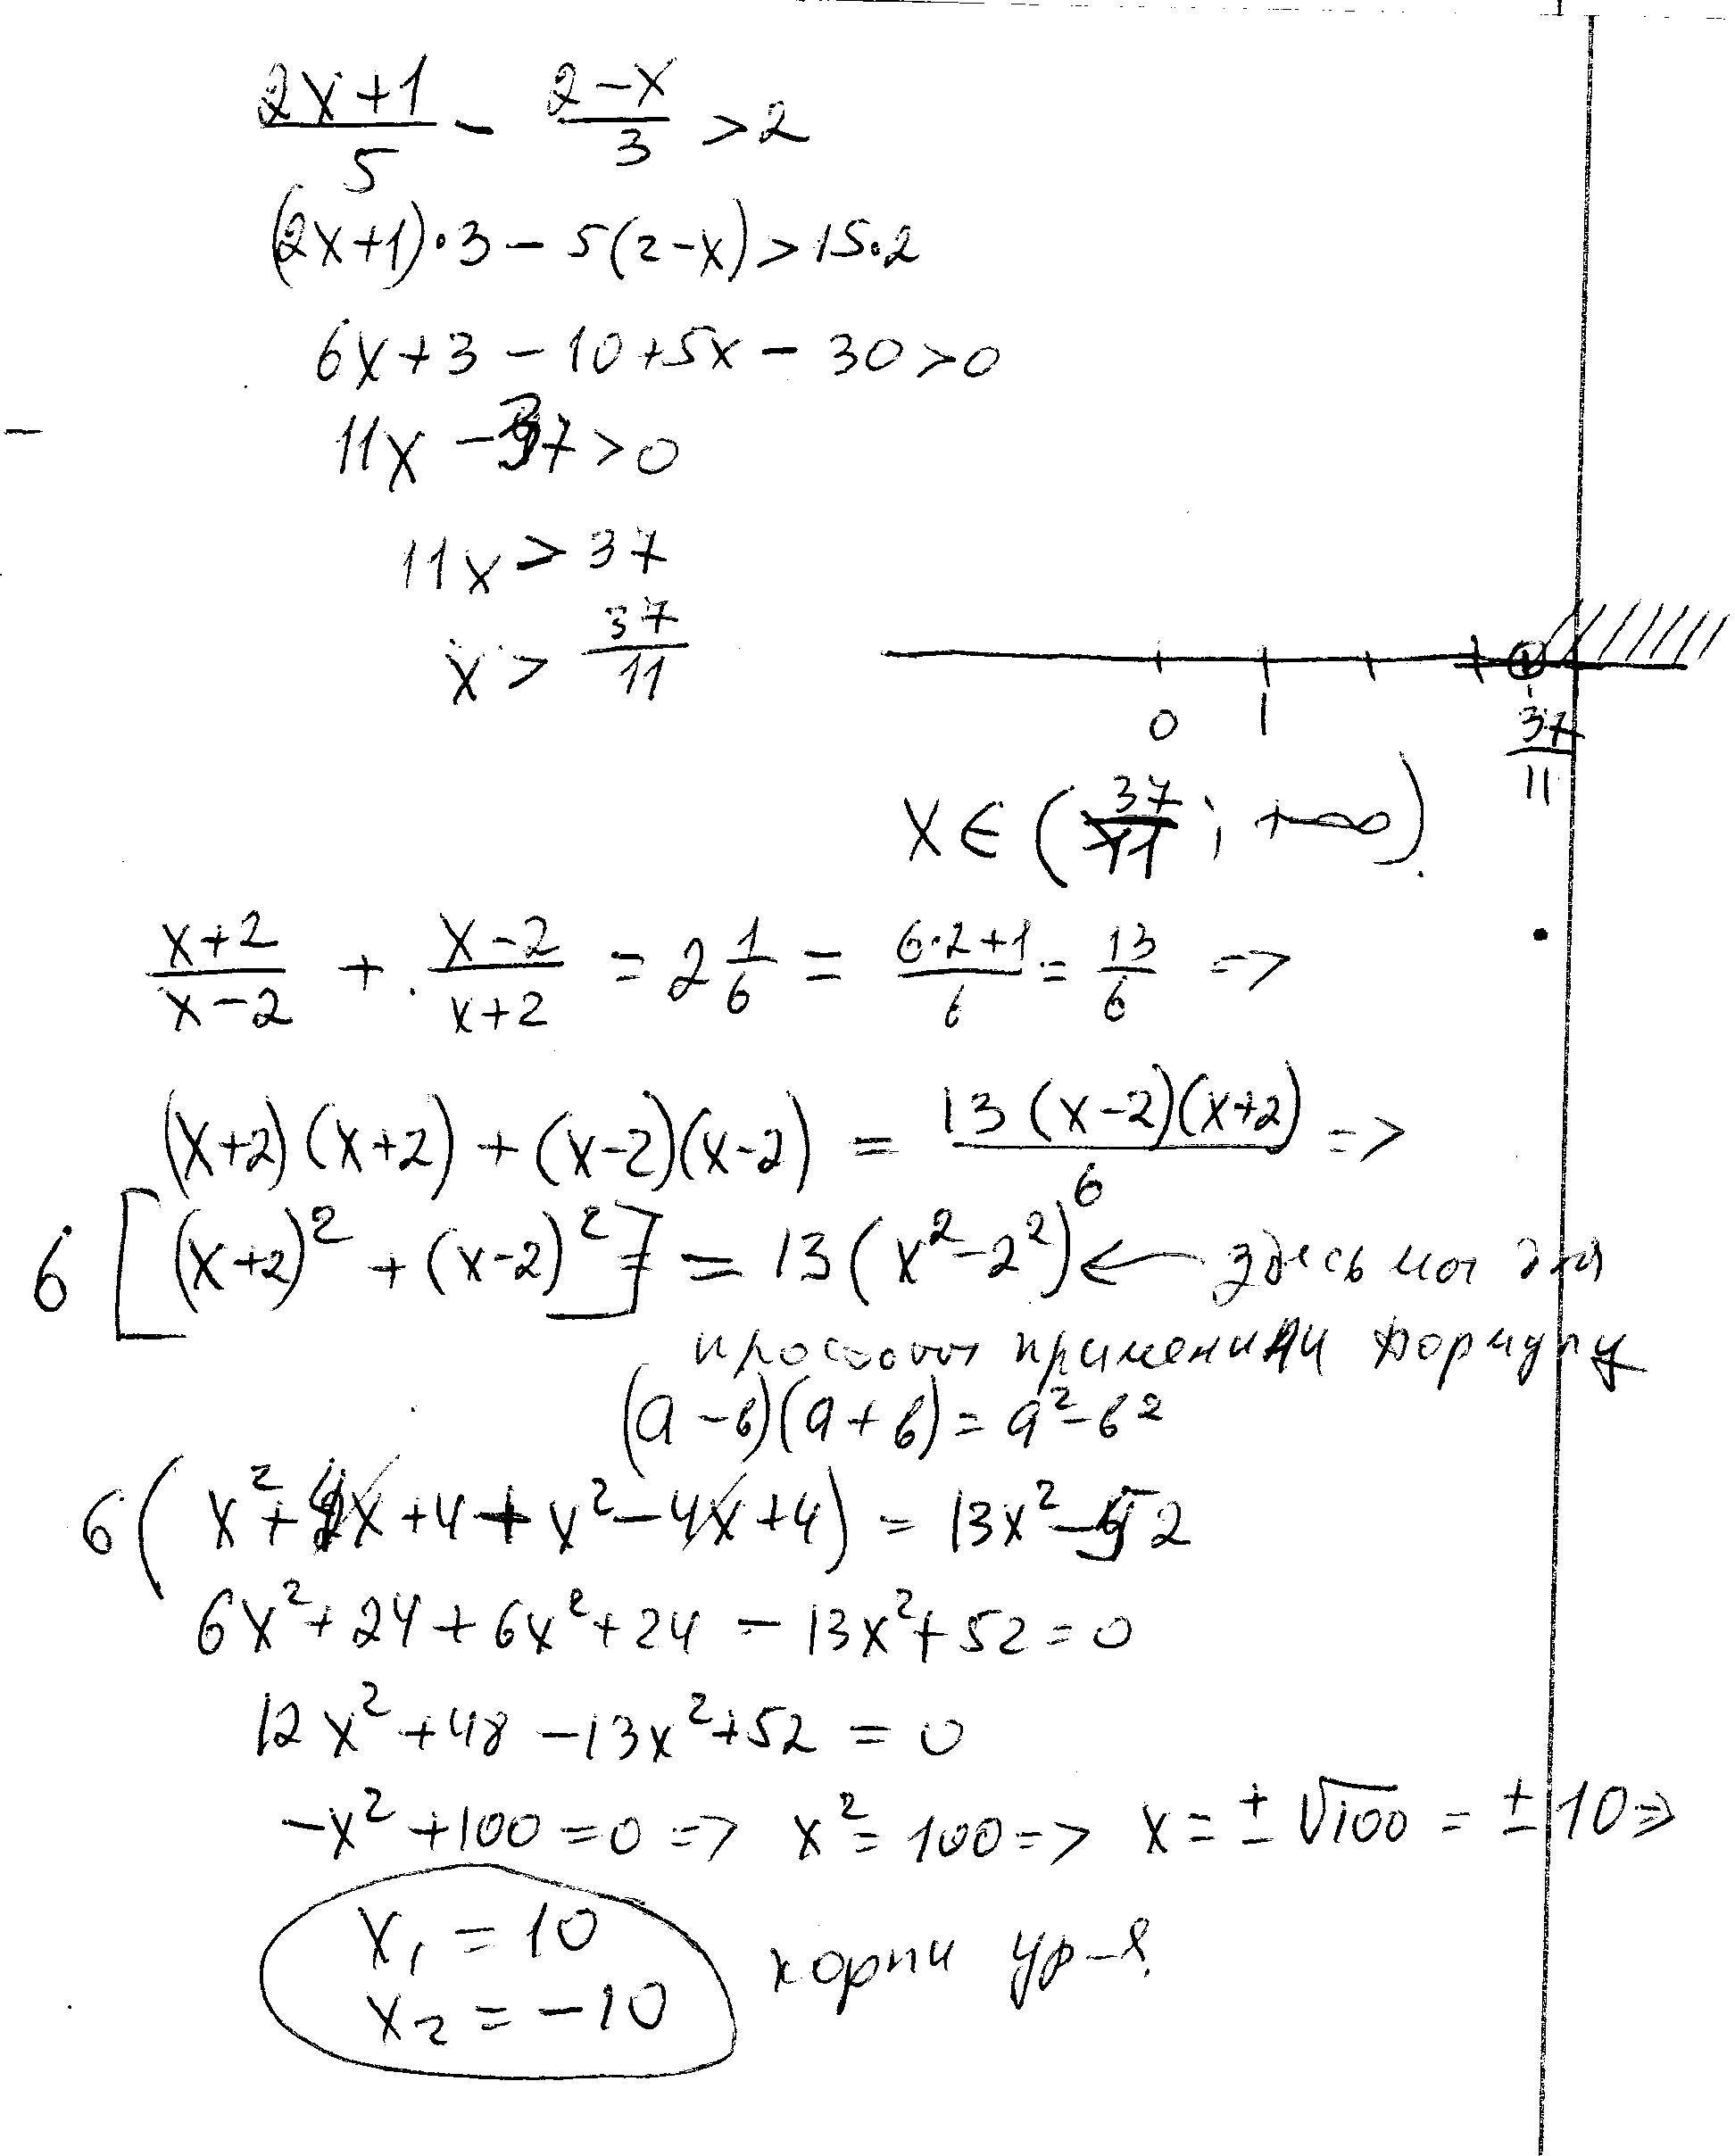 (2x+1)/5 - (2-x)/3 > 2
(2x+1)·3 - 5(2-x) > 15·2
6x+3 - 10+5x - 30 > 0
11x - 37 > 0
11x > 37
x > 37/11
0 1 37/11
x ∈ (37/11; +∞).
(x+2)/(x-2) + (x-2)/(x+2) = 2 1/6 = (6·2+1)/6 = 13/6 =>
(x+2)(x+2) + (x-2)(x-2) = 13(x-2)(x+2)/6 =>
6[(x+2)² + (x-2)²] = 13(x²-2²) ← здесь мы для
простоты применили формулу
(a-b)(a+b) = a²-b²
6(x²+4x+4+x²-4x+4) = 13x²-52
6x²+24+6x²+24 - 13x²+52 = 0
12x²+48 - 13x²+52 = 0
-x²+100 = 0 => x² = 100 => x = ±√100 = ±10 =>
x₁ = 10
x₂ = -10
корни ур-я.